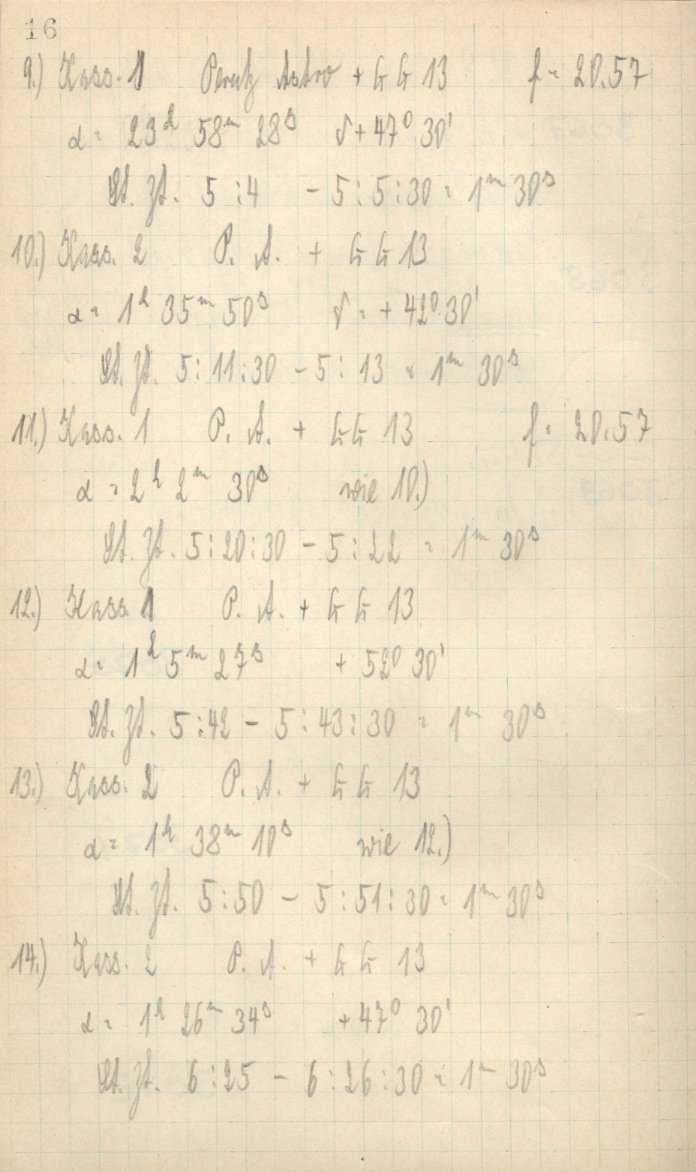 16
9.) Kass. 1 Perutz Astro + G G 13 f = 20.57
α = 23h 58m 28s δ + 47° 30'
St. Zt. 5 : 4 - 5 : 5 : 30 = 1m 30s
10.) Kass. 2 P. A. + G G 13
α = 1h 35m 50s δ = + 42° 30'
St. Zt. 5 : 11 : 30 - 5 : 13 = 1m 30s
11.) Kass. 1 P. A. + G G 13 f = 20.57
α = 2h 2m 30s wie 10.)
St. Zt. 5 : 20 : 30 - 5 : 22 = 1m 30s
12.) Kass. 1 P. A. + G G 13
α = 1h 5m 27s + 52° 30'
St. Zt. 5 : 42 - 5 : 43 : 30 = 1m 30s
13.) Kass. 2 P. A. + G G 13
α = 1h 38m 10s wie 12.)
St. Zt. 5 : 50 - 5 : 51 : 30 = 1m 30s
14.) Kass. 2 P. A. + G G 13
α = 1h 26m 34s + 47° 30'
St. Zt. 6 : 25 - 6 : 26 : 30 = 1m 30s